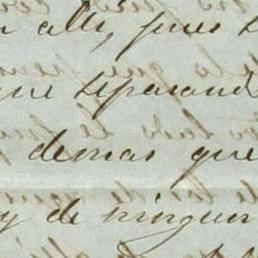 alli, pues
que separand
demas que
y de ningun